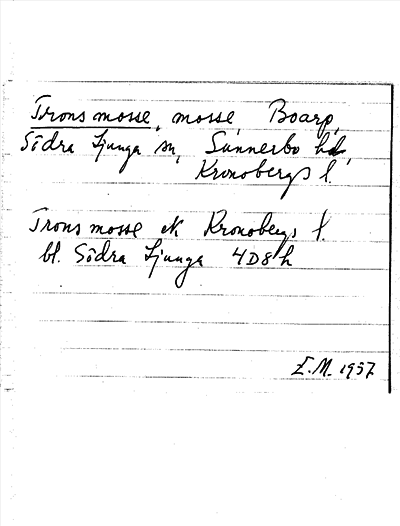 Trons mosse, mosse Boarp,
Södra Ljunga sn, Sunnerbo hd,
Kronobergs l.
Trons mosse ek Kronobergs l.
bl. Södra Ljunga 4D8h
E.M. 1957